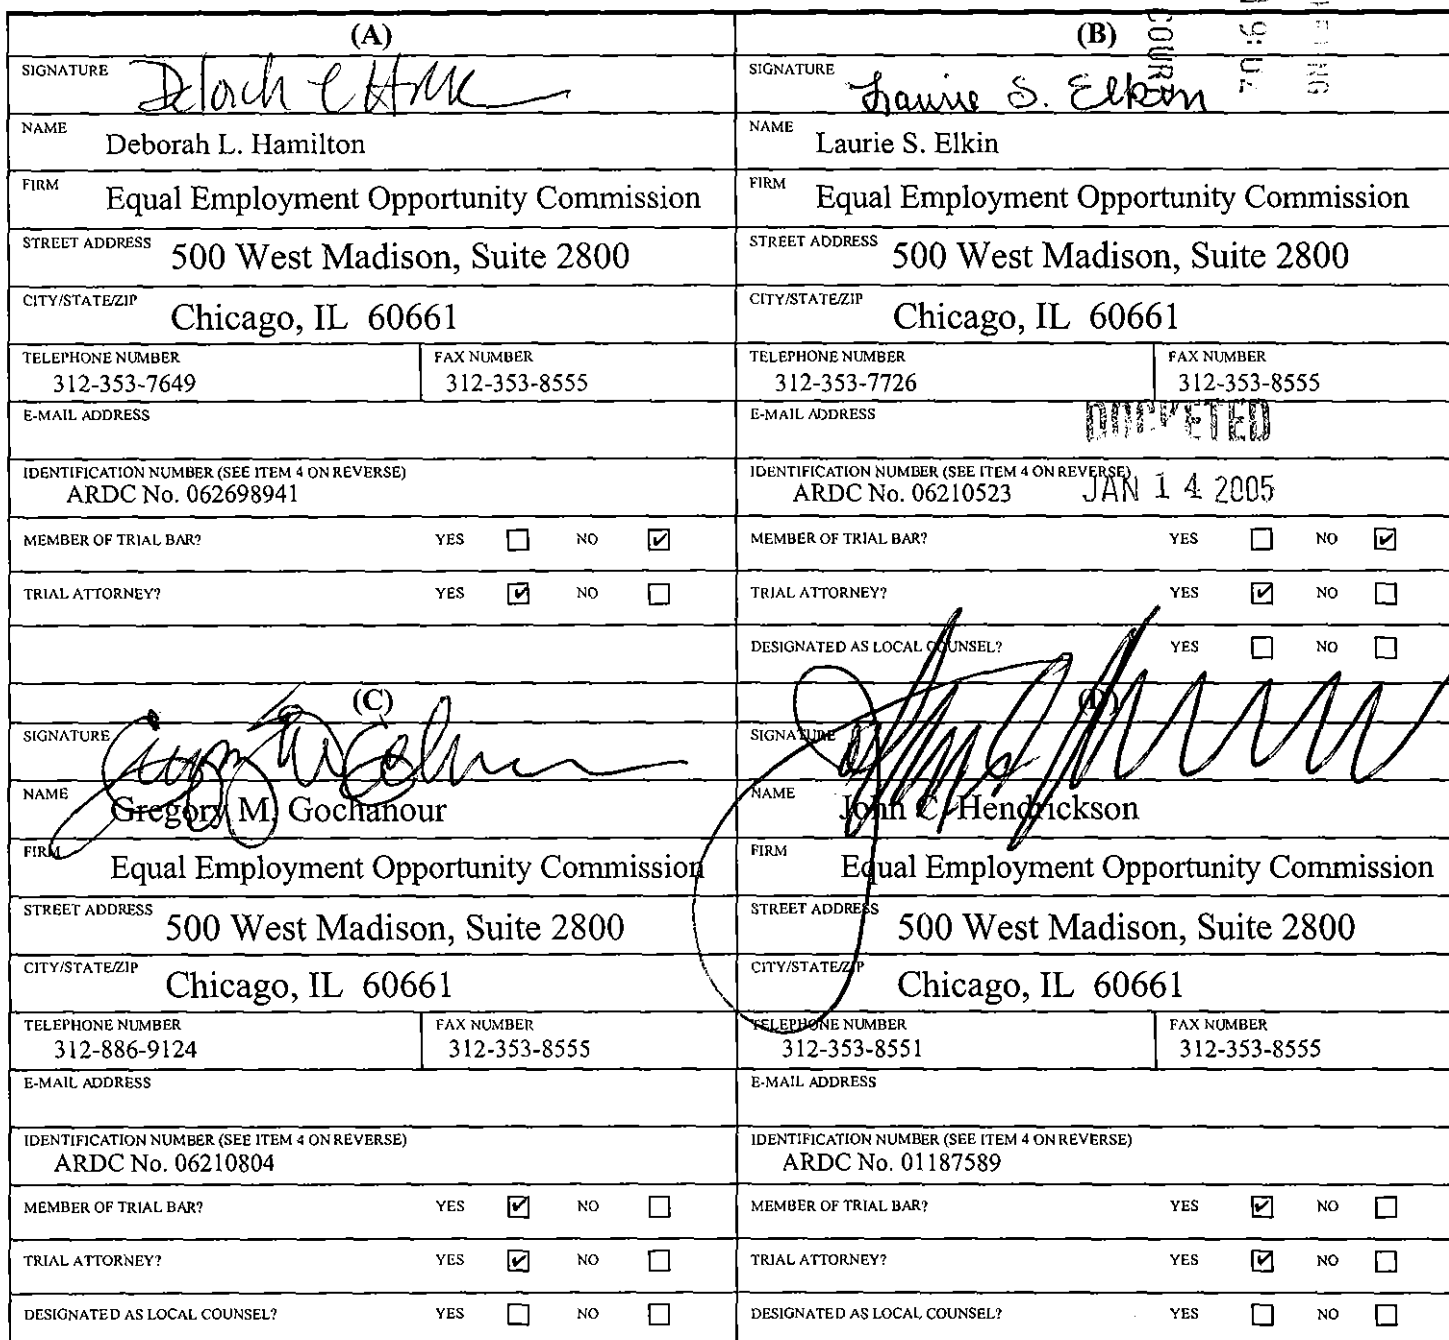 (A)
SIGNATURE
NAME Deborah L. Hamilton
FIRM Equal Employment Opportunity Commission
STREET ADDRESS 500 West Madison, Suite 2800
CITY/STATE/ZIP Chicago, IL 60661
TELEPHONE NUMBER 312-353-7649
FAX NUMBER 312-353-8555
E-MAIL ADDRESS
IDENTIFICATION NUMBER (SEE ITEM 4 ON REVERSE)
ARDC No. 062698941
MEMBER OF TRIAL BAR? YES ☐ NO ☑
TRIAL ATTORNEY? YES ☑ NO ☐
(B)
COUR
SIGNATURE Laurie S. Elkin
NAME Laurie S. Elkin
FIRM Equal Employment Opportunity Commission
STREET ADDRESS 500 West Madison, Suite 2800
CITY/STATE/ZIP Chicago, IL 60661
TELEPHONE NUMBER 312-353-7726
FAX NUMBER 312-353-8555
E-MAIL ADDRESS
DOCKETED
IDENTIFICATION NUMBER (SEE ITEM 4 ON REVERSE)
ARDC No. 06210523
JAN 14 2005
MEMBER OF TRIAL BAR? YES ☐ NO ☑
TRIAL ATTORNEY? YES ☑ NO ☐
DESIGNATED AS LOCAL COUNSEL? YES ☐ NO ☐
(C)
SIGNATURE
NAME Gregory M. Gochanour
FIRM Equal Employment Opportunity Commission
STREET ADDRESS 500 West Madison, Suite 2800
CITY/STATE/ZIP Chicago, IL 60661
TELEPHONE NUMBER 312-886-9124
FAX NUMBER 312-353-8555
E-MAIL ADDRESS
IDENTIFICATION NUMBER (SEE ITEM 4 ON REVERSE)
ARDC No. 06210804
MEMBER OF TRIAL BAR? YES ☑ NO ☐
TRIAL ATTORNEY? YES ☑ NO ☐
DESIGNATED AS LOCAL COUNSEL? YES ☐ NO ☐
(D)
SIGNATURE
NAME John C. Hendrickson
FIRM Equal Employment Opportunity Commission
STREET ADDRESS 500 West Madison, Suite 2800
CITY/STATE/ZIP Chicago, IL 60661
TELEPHONE NUMBER 312-353-8551
FAX NUMBER 312-353-8555
E-MAIL ADDRESS
IDENTIFICATION NUMBER (SEE ITEM 4 ON REVERSE)
ARDC No. 01187589
MEMBER OF TRIAL BAR? YES ☑ NO ☐
TRIAL ATTORNEY? YES ☑ NO ☐
DESIGNATED AS LOCAL COUNSEL? YES ☐ NO ☐